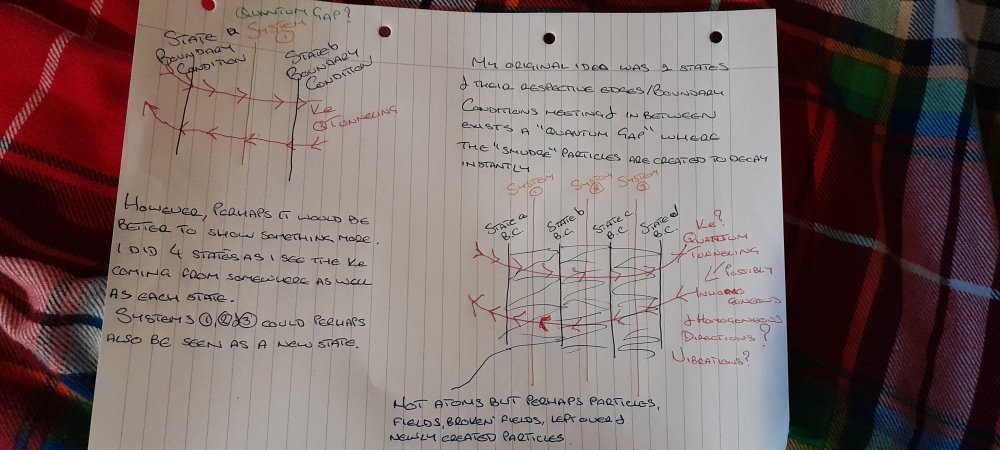 QUANTUM GAP?
STATE a
BOUNDARY
CONDITION
SYSTEM
①
STATE b
BOUNDARY
CONDITION
Ke
QTUNNELING
HOWEVER, PERHAPS IT WOULD BE
BETTER TO SHOW SOMETHING MORE.
I DID 4 STATES AS I SEE THE Ke
COMING FROM SOMEWHERE AS WELL
AS EACH STATE.
SYSTEMS ①,②&③ COULD PERHAPS
ALSO BE SEEN AS A NEW STATE.
MY ORIGINAL IDEA WAS 2 STATES
& THEIR RESPECTIVE EDGES/BOUNDARY
CONDITIONS MEETING & IN BETWEEN
EXISTS A "QUANTUM GAP" WHERE
THE "SMUDGE" PARTICLES ARE CREATED TO DECAY
INSTANTLY
SYSTEM
①
SYSTEM
②
SYSTEM
③
STATE a
B.C.
STATE b
B.C.
STATE c
B.C.
STATE d
B.C.
Ke?
QUANTUM
TUNNELING
POSSIBLY
INHOMO
GENEOUS
& HOMOGENEOUS
DIRECTIONS?
VIBRATIONS?
NOT ATOMS BUT PERHAPS PARTICLES,
FIELDS, BROKEN FIELDS, LEFTOVER &
NEWLY CREATED PARTICLES.